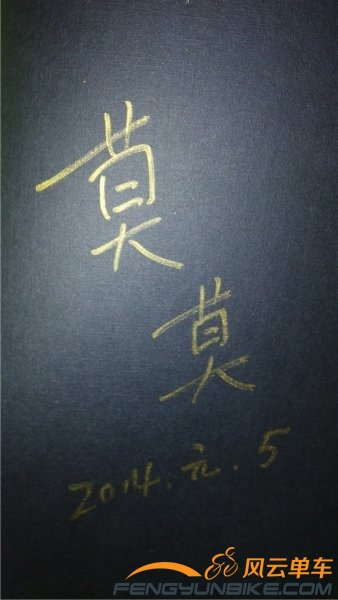 莫
莫
2014.元.5
风云单车
FENGYUNBIKE.COM